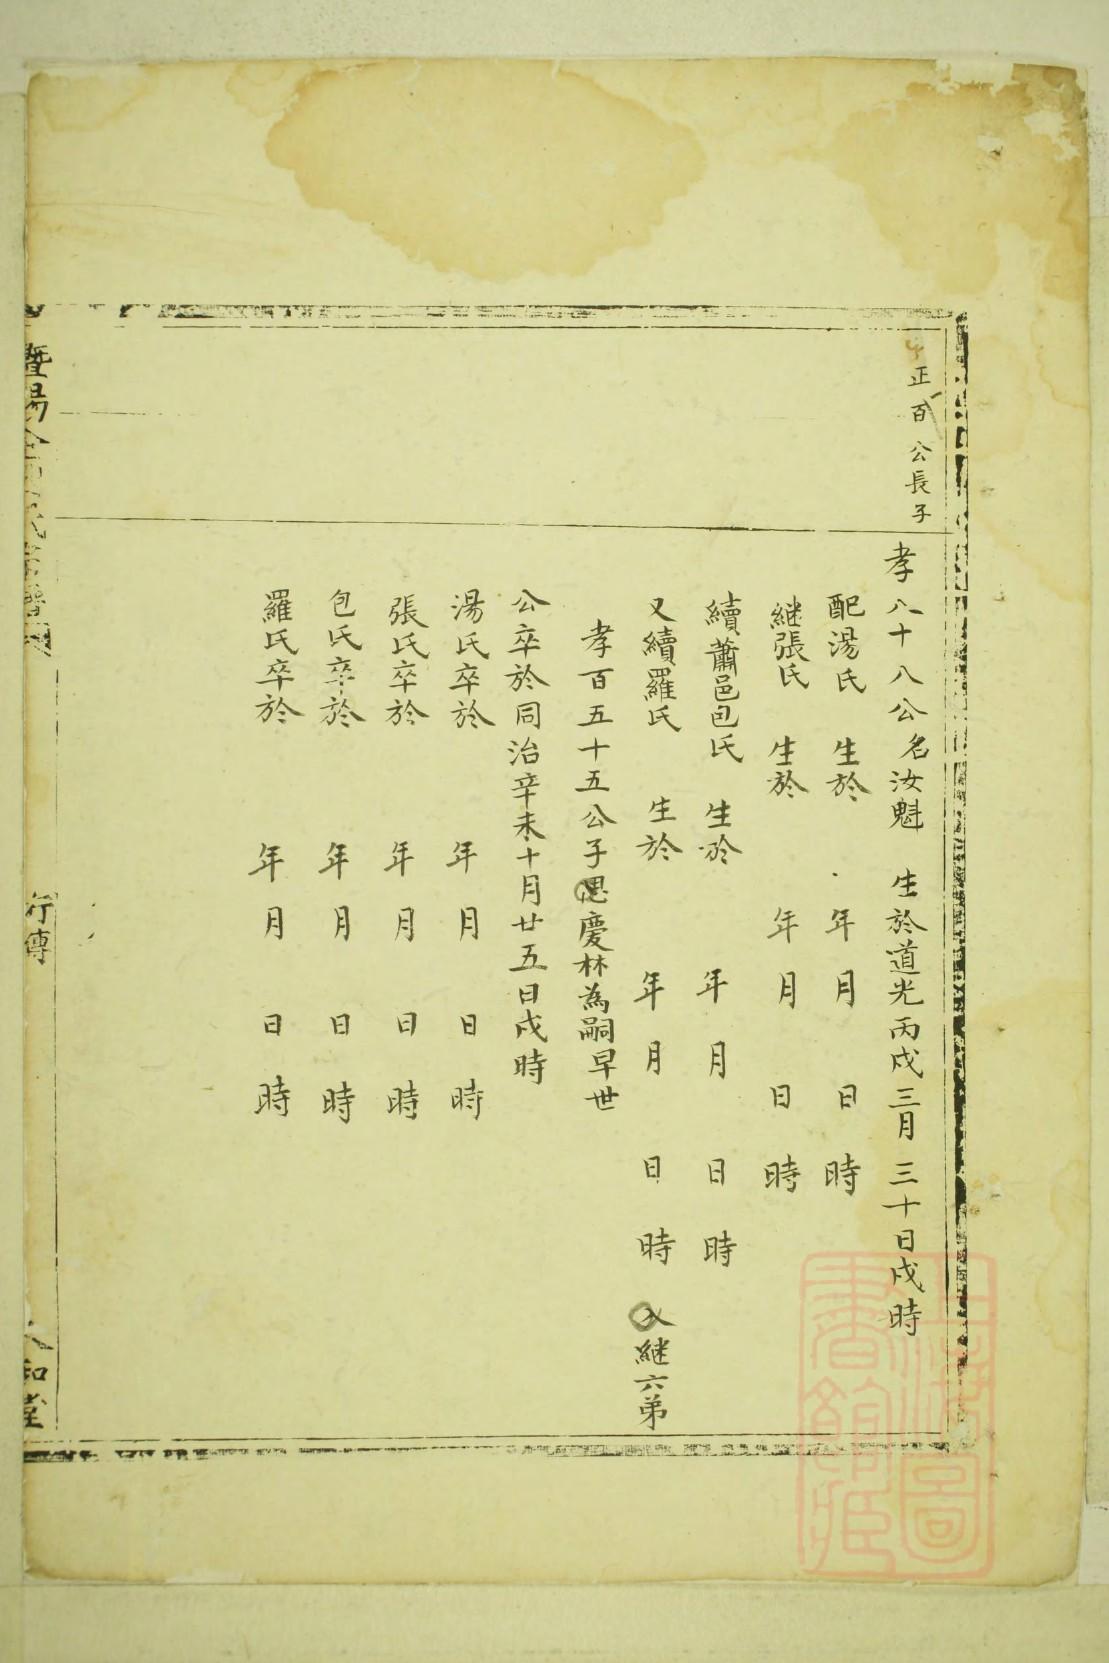 正百公長子
孝八十八公名汝魁 生於道光丙戌三月三十日戌時
配湯氏 生於 年月 日時
継張氏 生於 年月 日時
續蕭邑包氏 生於 年月 日時
又續羅氏 生於 年月 日時 入継六弟
孝百五十五公子思慶林為嗣早世
公卒於同治辛未十月廿五日戌時
湯氏卒於 年月 日時
張氏卒於 年月 日時
包氏卒於 年月 日時
羅氏卒於 年月 日時
暨陽 宗譜
行傳
和堂